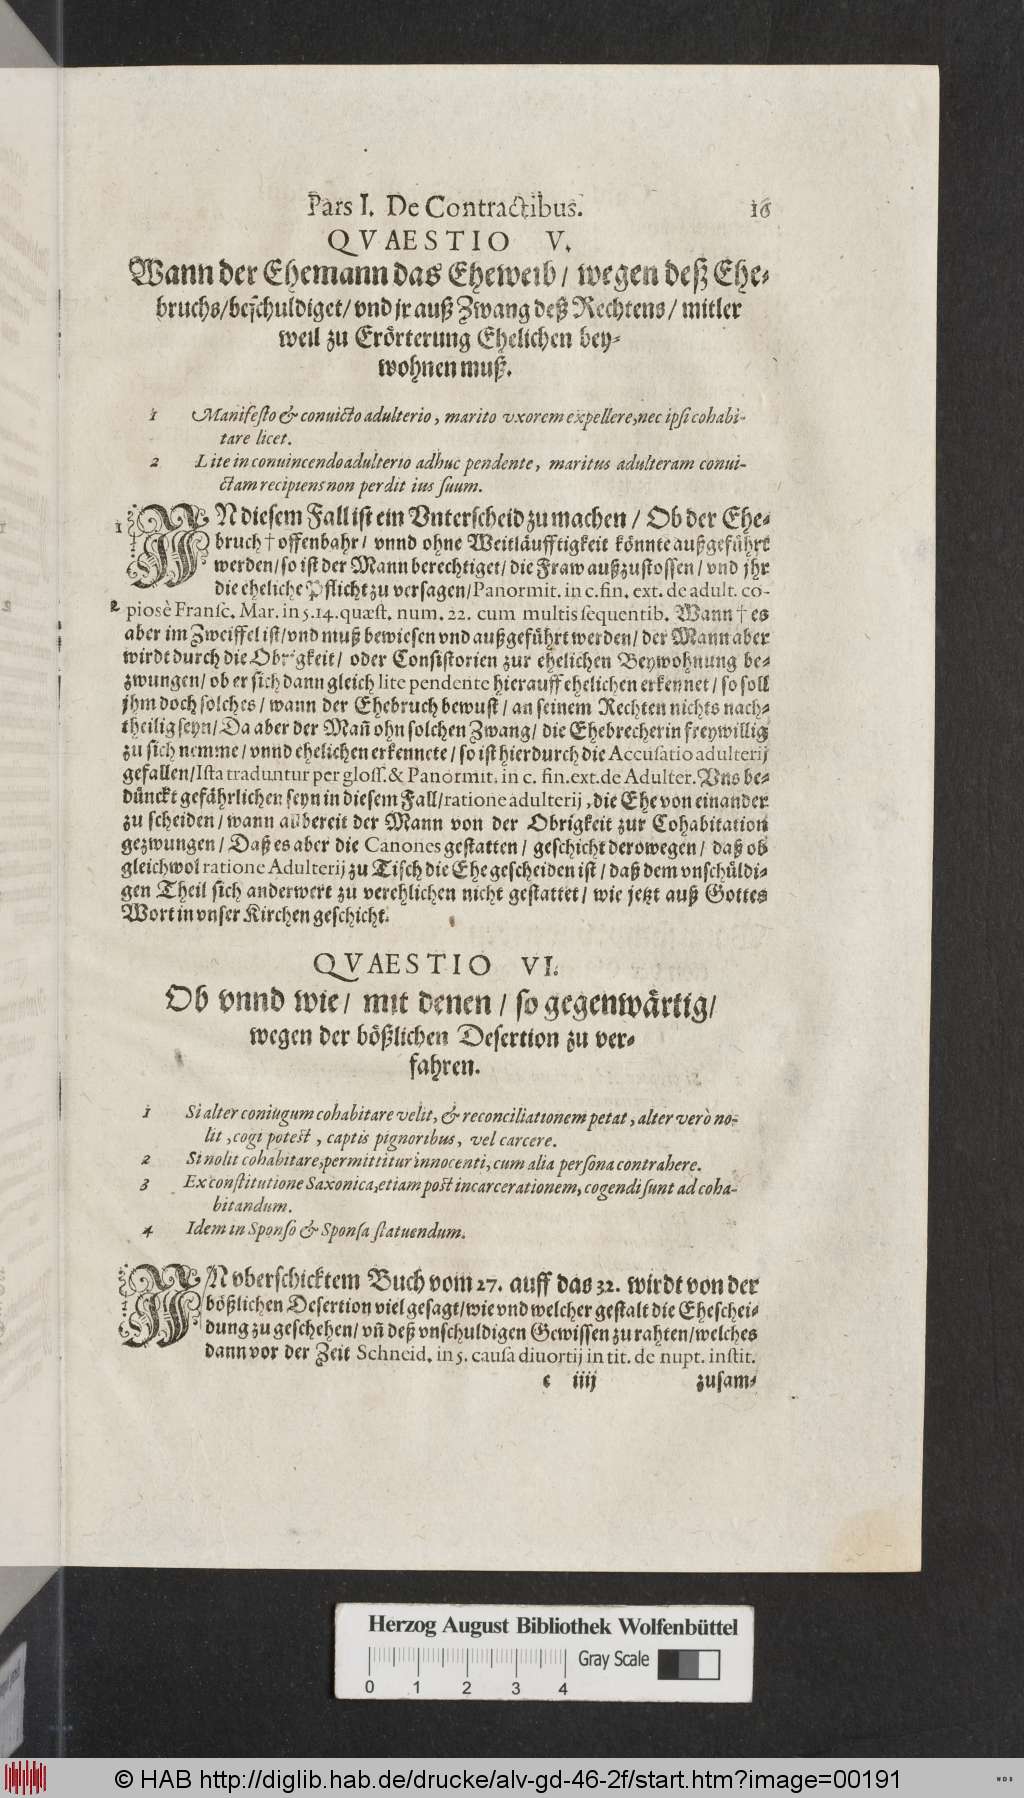 Pars I. De Contractibus. 16
QVAESTIO V.
Wann der Ehemann das Eheweib / wegen deß Ehe-
bruchs / beschuldiget / vnd jr auß Zwang deß Rechtens / mitler
weil zu Erörterung Ehelichen bey-
wohnen muß.
1 Manifesto & conuicto adulterio, marito vxorem expellere, nec ipsi cohabi-
tare licet.
2 Lite in conuincendo adulterio adhuc pendente, maritus adulteram conui-
ctam recipiens non perdit ius suum.
1 IN diesem Fall ist ein Vnterscheid zu machen / Ob der Ehe-
bruch † offenbahr / vnnd ohne Weitläufftigkeit könnte außgeführt
werden / so ist der Mann berechtiget / die Fraw außzustossen / vnd jhr
die eheliche Pflicht zu versagen / Panormit. in c. fin. ext. de adult. co-
2 piosè Fransc. Mar. in 5. 14. quæst. num. 22. cum multis sequentib. Wann † es
aber im Zweiffel ist / vnd muß bewiesen vnd außgeführt werden / der Mann aber
wirdt durch die Obrigkeit / oder Consistorien zur ehelichen Beywohnung be-
zwungen / ob er sich dann gleich lite pendente hierauff ehelichen erkennet / so soll
jhm doch solches / wann der Ehebruch bewust / an seinem Rechten nichts nach-
theilig seyn / Da aber der Mañ ohn solchen Zwang / die Ehebrecherin freywillig
zu sich nemme / vnnd ehelichen erkennete / so ist hierdurch die Accusatio adulterij
gefallen / Ista traduntur per gloss. & Panormit. in c. fin. ext. de Adulter. Vns be-
dünckt gefährlichen seyn in diesem Fall / ratione adulterij, die Ehe von einander
zu scheiden / wann allbereit der Mann von der Obrigkeit zur Cohabitation
gezwungen / Daß es aber die Canones gestatten / geschicht derowegen / daß ob
gleichwol ratione Adulterij zu Tisch die Ehe gescheiden ist / daß dem vnschüldi-
gen Theil sich anderwert zu verehlichen nicht gestattet / wie jetzt auß Gottes
Wort in vnser Kirchen geschicht.
QVAESTIO VI.
Ob vnnd wie / mit denen / so gegenwärtig /
wegen der bößlichen Desertion zu ver-
fahren.
1 Si alter coniugum cohabitare velit, & reconciliationem petat, alter verò no-
lit, cogi potest, captis pignoribus, vel carcere.
2 Si nolit cohabitare, permittitur innocenti, cum alia persona contrahere.
3 Ex constitutione Saxonica, etiam post incarcerationem, cogendi sunt ad coha-
bitandum.
4 Idem in Sponso & Sponsa statuendum.
IN vberschicktem Buch vom 27. auff das 32. wirdt von der
bößlichen Desertion viel gesagt / wie vnd welcher gestalt die Eheschei-
dung zu geschehen / vñ deß vnschuldigen Gewissen zu rahten / welches
dann vor der Zeit Schneid. in 5. causa diuortij in tit. de nupt. instit.
c iiij zusam-
Herzog August Bibliothek Wolfenbüttel
Gray Scale
0 1 2 3 4
© HAB http://diglib.hab.de/drucke/alv-gd-46-2f/start.htm?image=00191